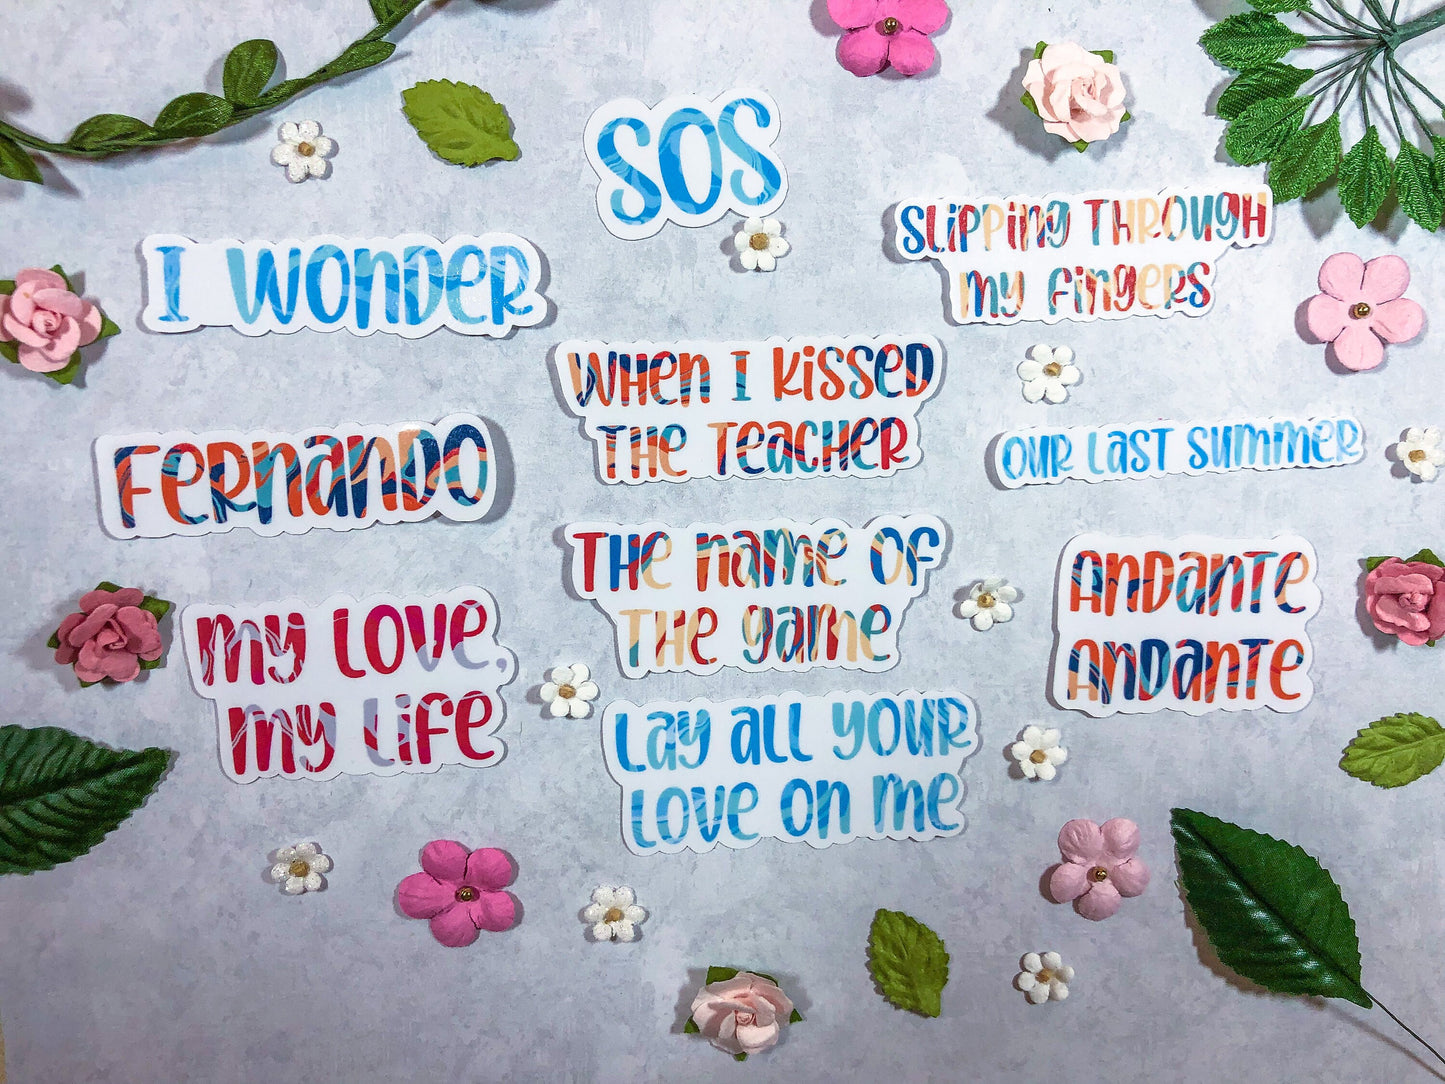 SOS
I WONDER
SLIPPING THROUGH
MY FINGERS
WHEN I KISSED
THE TEACHER
FERNANDO
OUR LAST SUMMER
THE NAME OF
THE GAME
ANDANTE
ANDANTE
MY LOVE,
MY LIFE
LAY ALL YOUR
LOVE ON ME